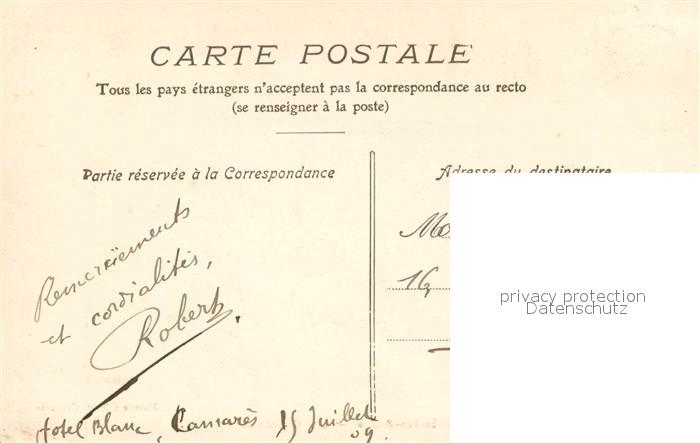 CARTE POSTALE
Tous les pays étrangers n'acceptent pas la correspondance au recto
(se renseigner à la poste)
Partie réservée à la Correspondance
Adresse du destinataire
Remerciements
et cordialités,
Robert.
Mo
16
privacy protection
Datenschutz
Hotel Blanc, Camarès 15 Juillet
09.